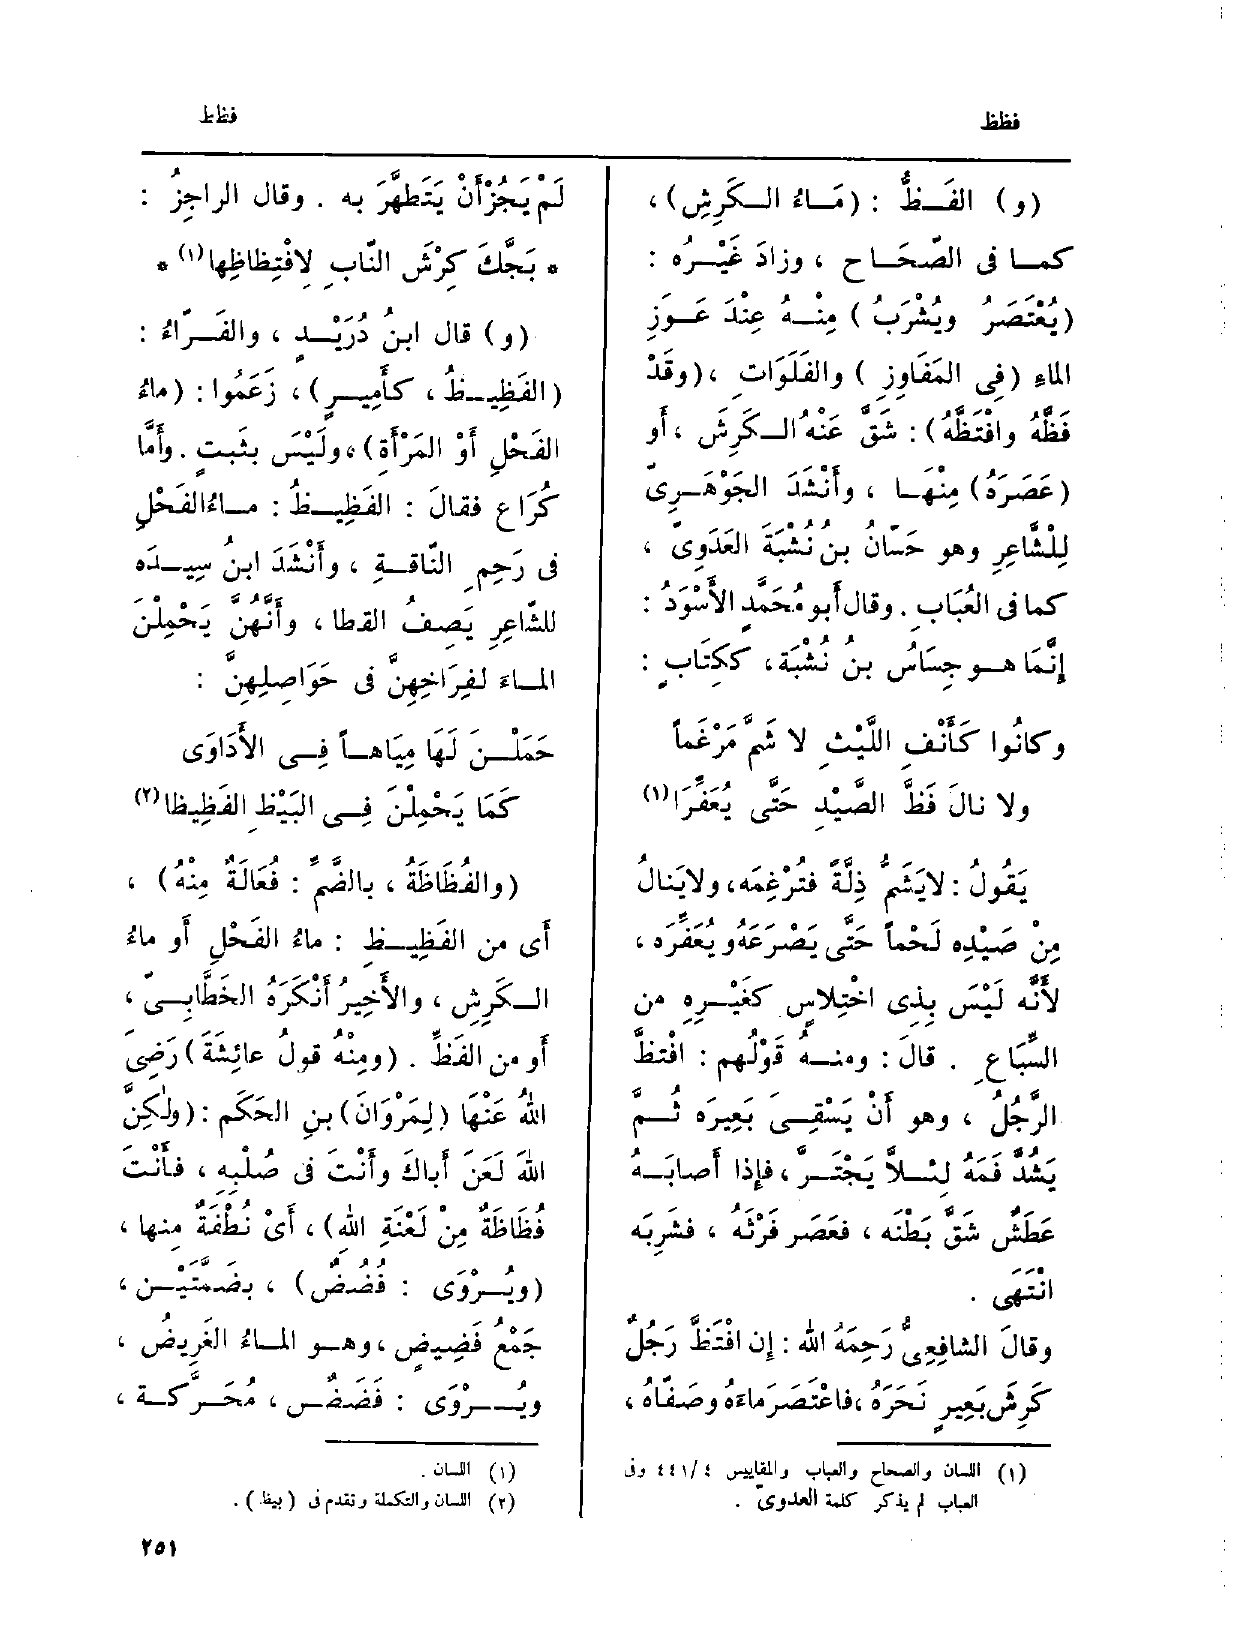 فظظ
فظظ
(و) الفَـظُّ : (مَـاءُ الـكَرِشِ) ،
كمـا فى الصّحَـاح ، وزادَ غَيْـرُه :
(يُعْتَصَرُ ويُشْرَبُ ) مِنْـهُ عِنْدَ عَـوَزِ
الماءِ (فِى المَفَاوِزِ ) والفَلَوَاتِ ، (وقَدْ
فَظَّهُ وافْتَظَّهُ) : شَقَّ عَنْهُ الـكَرِشَ ، أَو
(عَصَرَهُ) مِنْهَـا ، وأَنْشَدَ الجَوْهَـرِىّ
لِلْشَّاعِرِ وهو حَسّانُ بنُ نُشْبَةَ العَدَوِىّ ،
كما فى العُبَابِ . وقال أَبو مُحَمَّدٍ الأَسْوَدُ :
إِنَّمَا هـو جِسَاسُ بنُ نُشْبَةَ ، ككِتَابٍ :
وكانُوا كَأَنْفِ اللَّيْثِ لا شَمَّ مَرْغَماً
ولا نالَ فَظَّ الصَّيْدِ حَتَّى يُعَفِّرَا(١)
يَقُولُ : لايَشَمُّ ذِلَّةً فتُرْغِمَه ، ولايَنَالُ
مِنْ صَيْدِه لَحْماً حَتَّى يَصْرَعَهُ ويُعَفِّرَه ،
لأَنَّه لَيْسَ بِذِى اخْتِلاسٍ كغَيْـرِه من
السِّبَاعِ . قالَ : ومنـهُ قَوْلُهم : افْتَظَّ
الرَّجُلُ ، وهو أَنْ يَسْقِـىَ بَعِيرَه ثُـمَّ
يَشُدَّ فَمَهُ لِئـلاَّ يَجْتَـرَّ ، فإِذا أَصابَـهُ
عَطَشٌ شَقَّ بَطْنَه ، فعَصَر فَرْثَهُ ، فشَرِبَه
انْتَهَى .
وقالَ الشافِعِىُّ رَحِمَهُ الله : إِن افْتَظَّ رَجُلٌ
كَرِشَ بَعِيرٍ نَحَرَهُ ، فاعْتَصَرَ ماءَهُ وصَفّاهُ ،
(١) اللسان والصحاح والعباب والمقاييس ٤/ ٤٤١ وفى
العباب لم يذكر كلمة العدوىّ .
لَمْ يَجُزْ أَنْ يَتَطَهَّرَ به . وقال الراجِزُ :
* بَجَّكَ كِرْشَ النّابِ لِافْتِظاظِها(١) *
(و) قال ابنُ دُرَيْـدٍ ، والفَـرّاءُ :
(الفَظِيـظُ ، كأَمِيـرٍ) ، زَعَمُوا : (ماءُ
الفَحْلِ أَوْ المَرْأَةِ) ، ولَيْسَ بثَبتٍ . وأَمَّا
كُرَاع فقالَ : الفَظِيـظُ : مـاءُ الفَحْلِ
فى رَحِمِ النّاقـةِ ، وأَنْشَدَ ابنُ سِيـدَه
للشّاعِرِ يَصِفُ القطا ، وأَنَّهُنَّ يَحْمِلْنَ
المـاءَ لفِرَاخِهِنَّ فى حَوَاصِلِهِنَّ :
حَمَلْـنَ لَهَا مِيَاهـاً فِـى الأَدَاوَى
كَمَا يَحْمِلْنَ فِـى البَيْظِ الفَظِيظا(٢)
(والفُظَاظَةُ ، بالضَّمِّ : فُعَالَةٌ مِنْهُ) ،
أَى من الفَظِيـظِ : ماءُ الفَحْلِ أَو ماءُ
الـكَرِشِ ، والأَخِيرُ أَنْكَرَهُ الخَطَّابِـىّ ،
أَو من الفَظِّ . (ومِنْهُ قولُ عائِشَةَ) رَضِىَ
اللهُ عَنْهَا (لِمَرْوَانَ) بنِ الحَكَمِ : (ولٰكِنَّ
اللهَ لَعَنَ أَباكَ وأَنْتَ فى صُلْبِه ، فأَنْتَ
فُظَاظَةٌ مِنْ لَعْنَةِ اللهِ) ، أَىْ نُطْفَةٌ منها ،
(ويُـرْوَى : فُضُضٌ) ، بضَمَّتَيْـن ،
جَمْعُ فَضِيضٍ ، وهـو المـاءُ الغَرِيضُ ،
ويُــرْوَى : فَضَضٌ ، مُحَـرَّكـة ،
(١) اللسان .
(٢) اللسان والتكملة وتقدم فى ( بيظ ) .
٢٥١